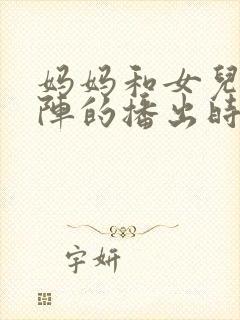 妈妈和女兒
陣的播出時
字妍